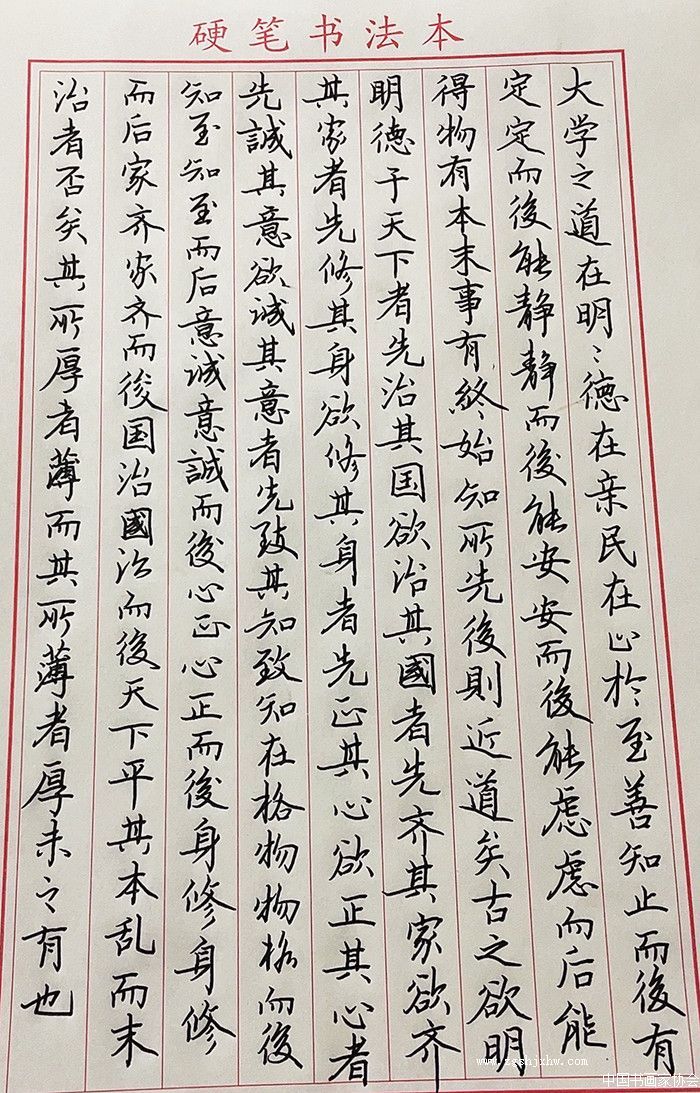 硬笔书法本
大学之道在明〻德在亲民在止於至善知止而後有
定定而後能静静而後能安安而後能虑虑而后能
得物有本末事有終始知所先後則近道矣古之欲明
明德于天下者先治其国欲治其國者先齐其家欲齐
其家者先修其身欲修其身者先正其心欲正其心者
先誠其意欲诚其意者先致其知致知在格物物格而後
知至知至而后意诚意誠而後心正心正而後身修身修
而后家齐家齐而後国治國治而後天下平其本乱而末
治者否矣其所厚者薄而其所薄者厚未之有也
www.zgshjxhw.com
中国书画家协会